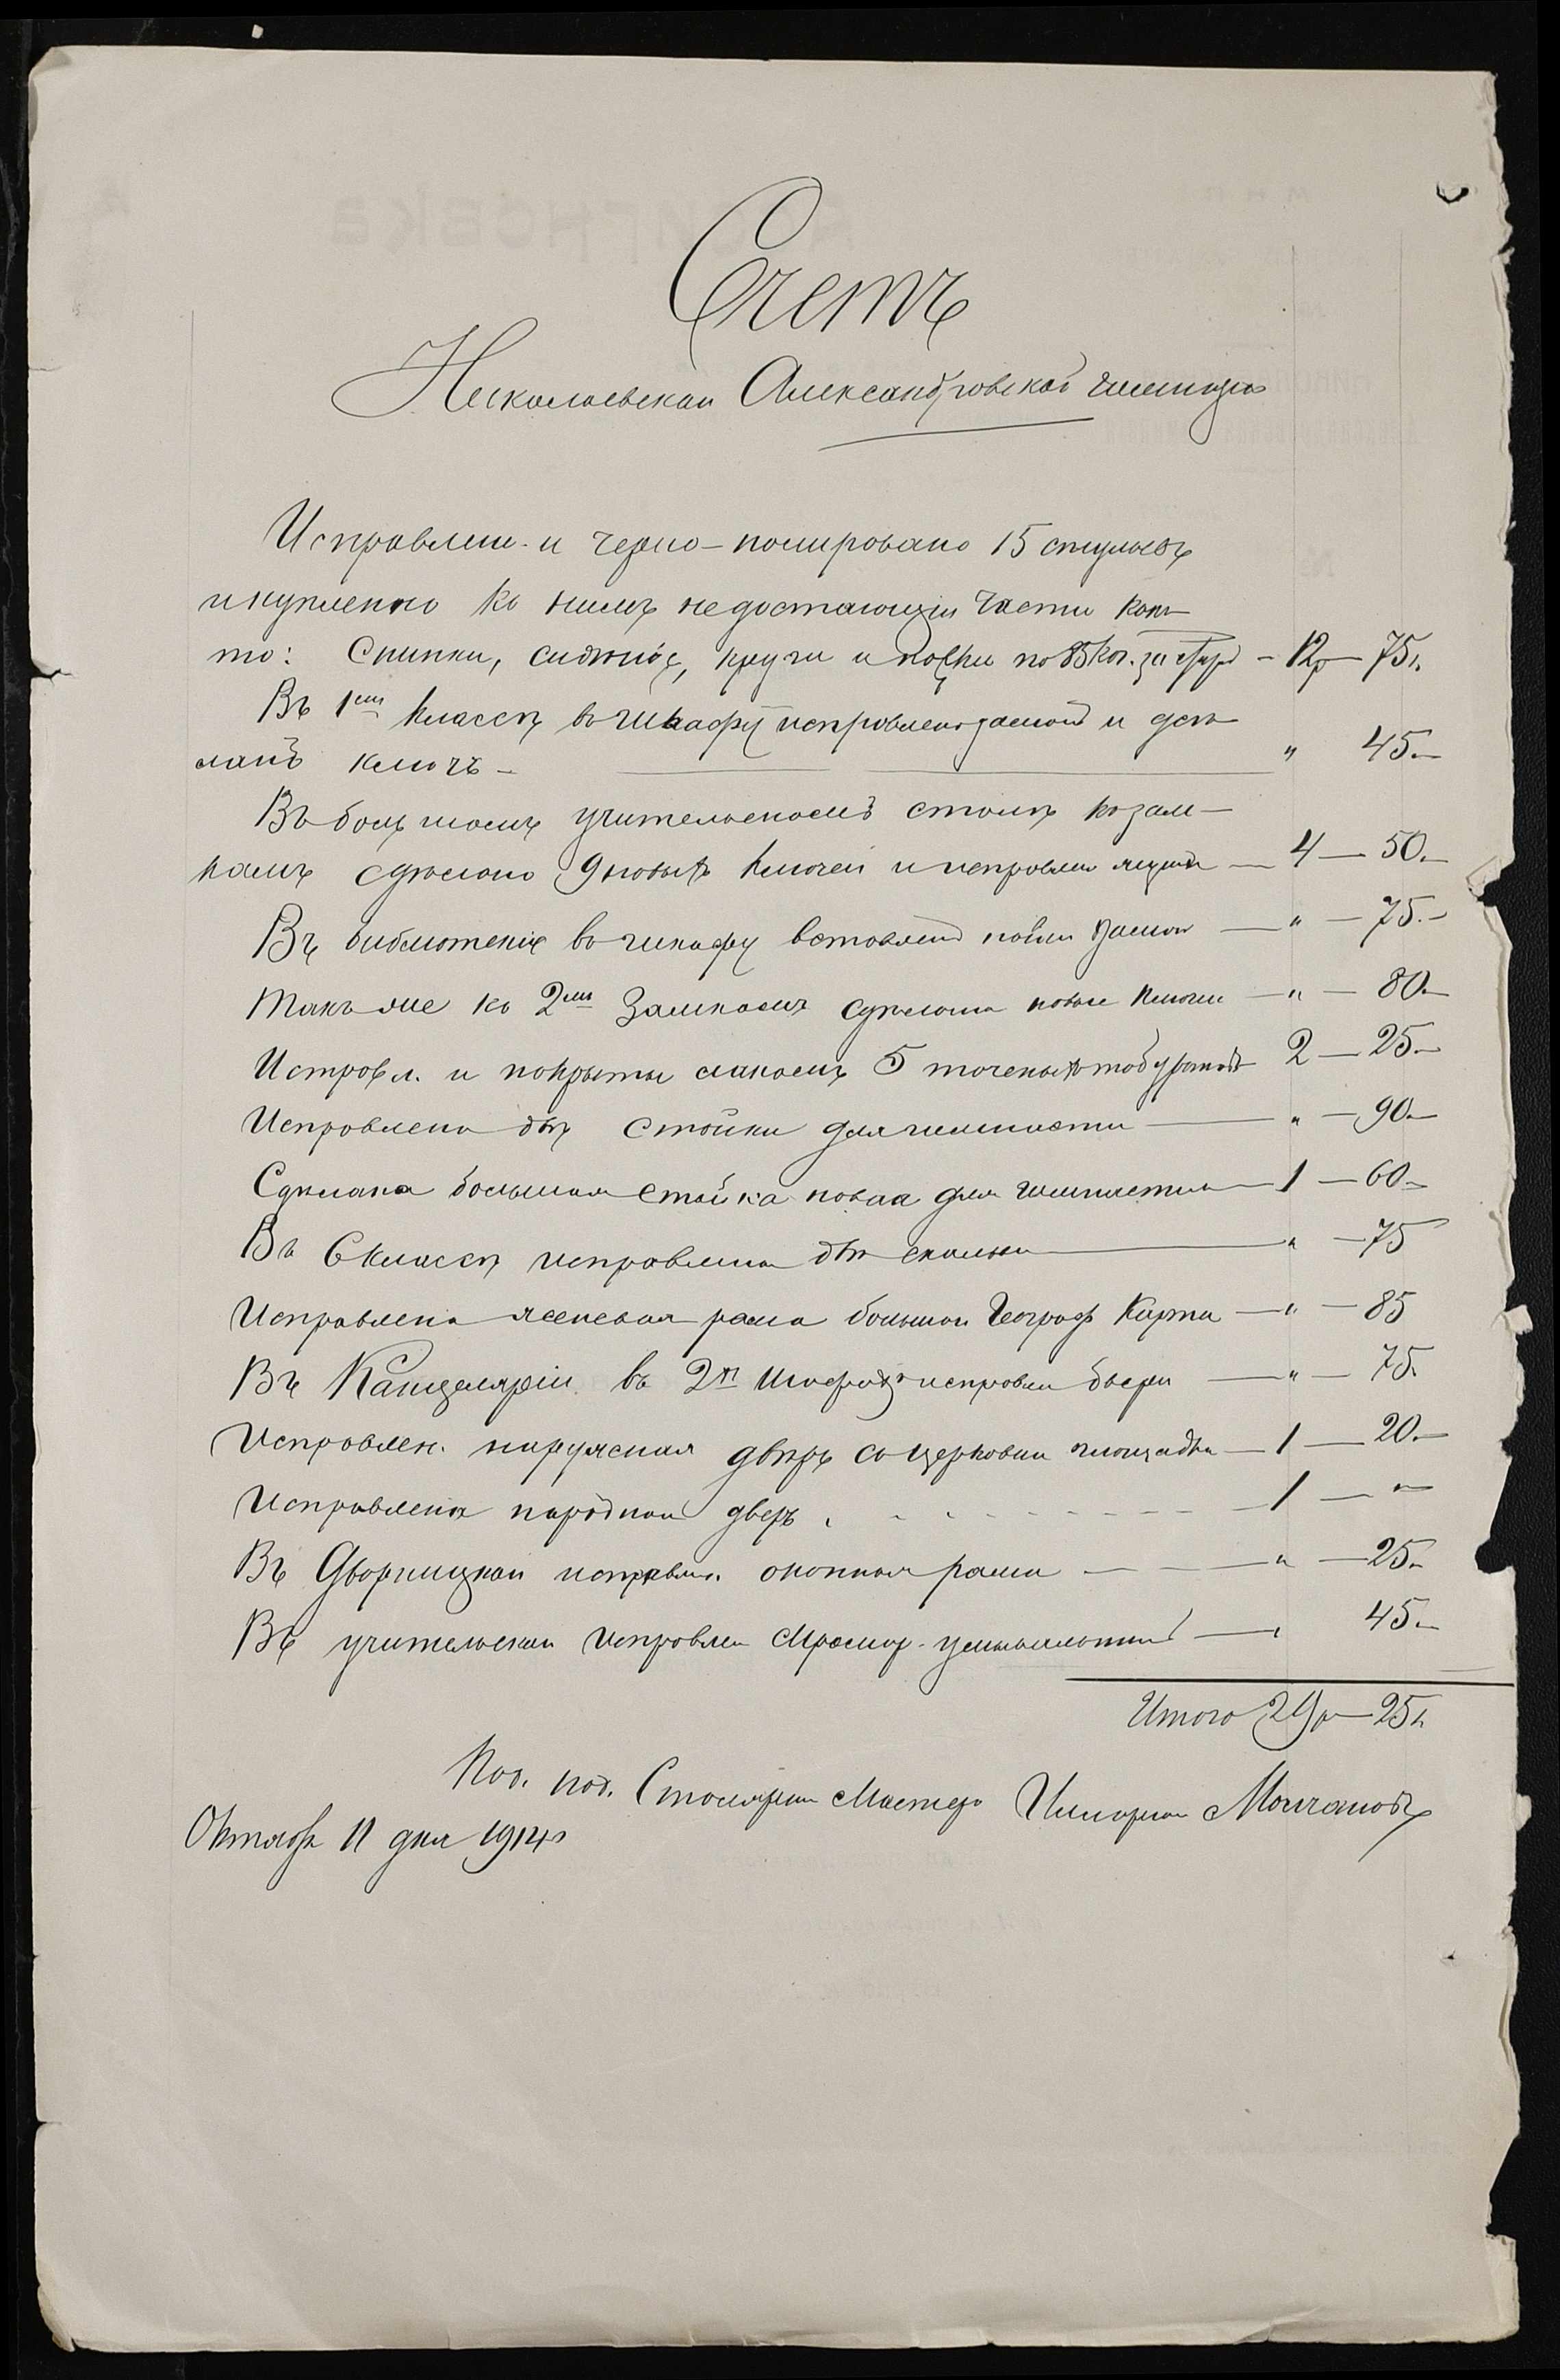 Счетъ
Николаевской Александровской гимназіи
Исправлен. и черно-полировано 15 стульевъ
и куплено къ нимъ недостающія части какъ-
то: Спинки, сидѣнія, круги и ножки по 85 коп. за стулъ - 12р - 75к.
Въ 1омъ классѣ въ шкафу исправленъ замокъ и сдѣ-
ланъ ключъ - " 45.-
Въ большомъ учительскомъ столѣ къ зам-
камъ сдѣлано 9 новыхъ ключей и исправлен ящики — 4 — 50.-
Въ библіотекѣ въ шкафу вставленъ новый замокъ — " — 75.-
Такъ же къ 2мъ замкамъ сдѣланы новые ключи — " — 80.-
Исправл. и покрыты лакомъ 5 точеныхъ табуретовъ 2 — 25.-
Исправлено двѣ стойки для гимнасти — " — 90.-
Сдѣлана большая стойка новая для гимнастики — 1 — 60.-
Въ 6 классѣ исправлена двѣ скамьи — " — 75
Исправлена ясеневая рама большой Географ Карты — " — 85
Въ Канцеляріи въ 2хъ шкафахъ исправлен двери — " — 75.
Исправлен. наружная дверь со церковной площадки — 1 — 20.-
Исправлена парадная дверь . - - - - - 1 — "-
Въ Дворницкой исправлен. оконная рама — — — " — 25.-
Въ учительской исправлен Мрамор. умывальникъ — " 45.-
Итого 29р — 25к
Пол. под. Столярный Мастеръ Молчановъ
Октября 11 дня 1914г